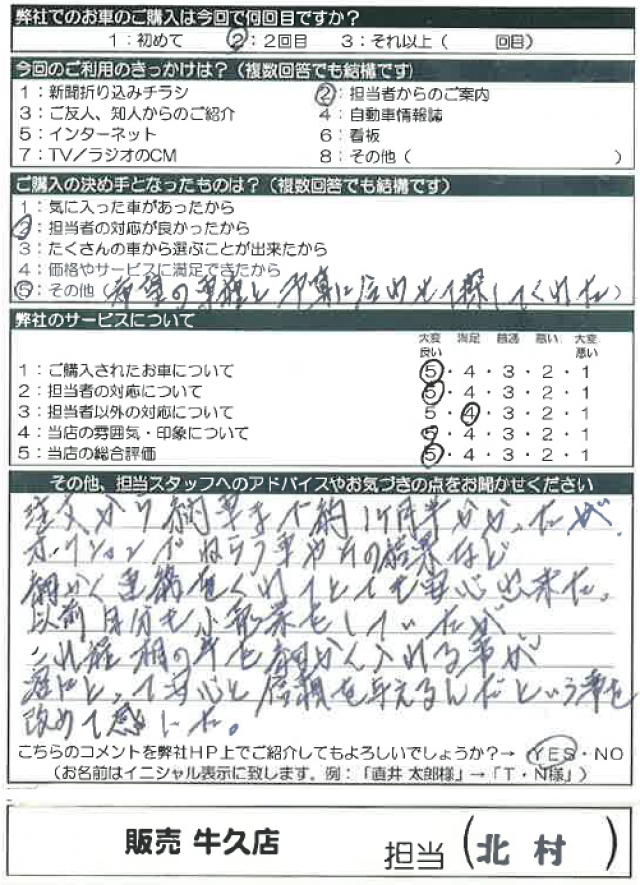 弊社でのお車のご購入は今回で何回目ですか？
1：初めて　2：2回目　3：それ以上（　　回目）
今回のご利用のきっかけは？（複数回答でも結構です）
1：新聞折り込みチラシ　2：担当者からのご案内
3：ご友人、知人からのご紹介　4：自動車情報誌
5：インターネット　6：看板
7：TV／ラジオのCM　8：その他（　　）
ご購入の決め手となったものは？（複数回答でも結構です）
1：気に入った車があったから
2：担当者の対応が良かったから
3：たくさんの車から選ぶことが出来たから
4：価格やサービスに満足できたから
5：その他（希望の車種と予算に合わせて探してくれた）
弊社のサービスについて
大変良い　満足　普通　悪い　大変悪い
1：ご購入されたお車について　5・4・3・2・1
2：担当者の対応について　5・4・3・2・1
3：担当者以外の対応について　5・4・3・2・1
4：当店の雰囲気・印象について　5・4・3・2・1
5：当店の総合評価　5・4・3・2・1
その他、担当スタッフへのアドバイスやお気づきの点をお聞かせください
注文から納車まで約1ヶ月半かかったが、
オークションでねらう車やその結果など
細かく連絡をくれてとても安心出来た。
以前自分も小売業をしていたが
これ程相の手を細かく入れる事が
客にとって安心と信頼を与えるんだという事を
改めて感じた。
こちらのコメントを弊社HP上でご紹介してもよろしいでしょうか？→ YES・NO
（お名前はイニシャル表示に致します。例：「直井 太郎様」→「T・N様」）
販売 牛久店　担当（北村）